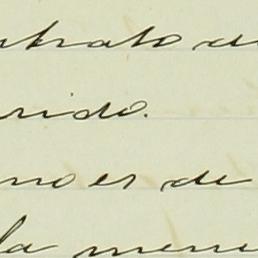 ntrato de
rido.
no es de
la mene